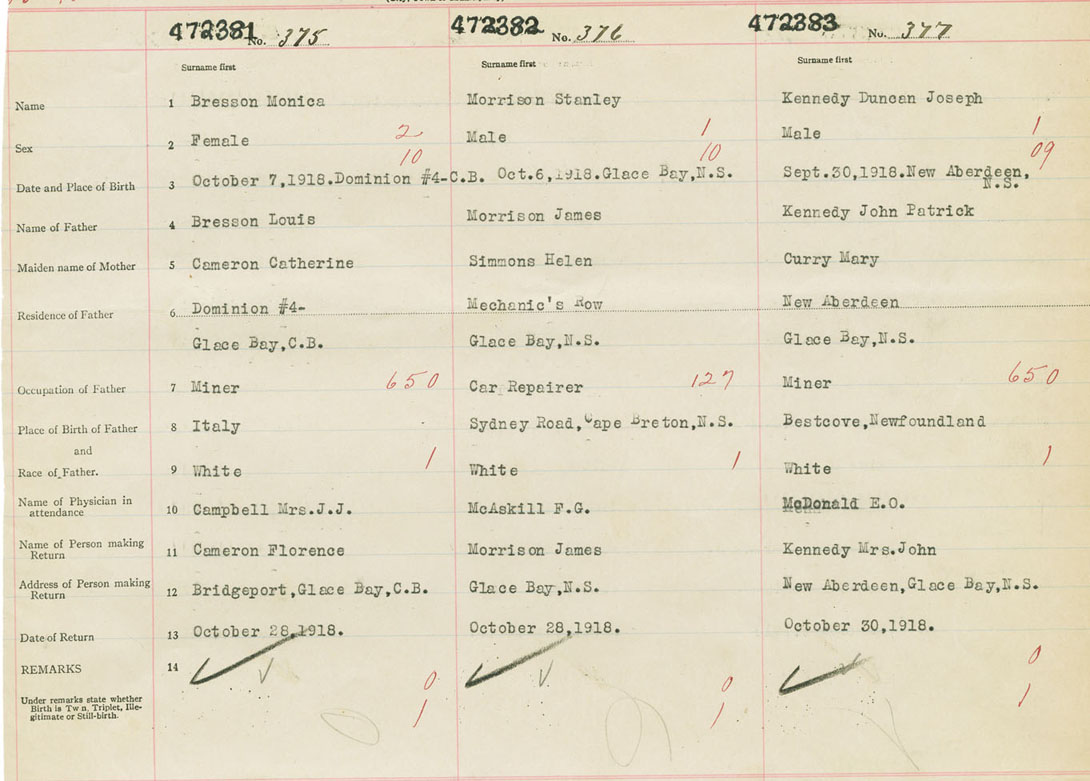 472381 No. 375 472382 No. 376 472383 No. 377
Surname first Surname first Surname first
Name 1 Bresson Monica Morrison Stanley Kennedy Duncan Joseph
Sex 2 Female 2 Male 1 Male 1
10 10 09
Date and Place of Birth 3 October 7,1918.Dominion #4-C.B. Oct.6,1918.Glace Bay,N.S. Sept.30,1918.New Aberdeen,
N.S.
Name of Father 4 Bresson Louis Morrison James Kennedy John Patrick
Maiden name of Mother 5 Cameron Catherine Simmons Helen Curry Mary
Residence of Father 6 Dominion #4- Mechanic's Row New Aberdeen
Glace Bay,C.B. Glace Bay,N.S. Glace Bay,N.S.
Occupation of Father 7 Miner 650 Car Repairer 127 Miner 650
Place of Birth of Father 8 Italy Sydney Road,Cape Breton,N.S. Bestcove,Newfoundland
and
Race of Father. 9 White 1 White 1 White 1
Name of Physician in
attendance 10 Campbell Mrs.J.J. McAskill F.G. McDonald E.O.
Name of Person making
Return 11 Cameron Florence Morrison James Kennedy Mrs.John
Address of Person making
Return 12 Bridgeport,Glace Bay,C.B. Glace Bay,N.S. New Aberdeen,Glace Bay,N.S.
Date of Return 13 October 28,1918. October 28,1918. October 30,1918.
REMARKS 14
0 0 0
Under remarks state whether
Birth is Twin, Triplet, Ille-
gitimate or Still-birth. 1 1 1